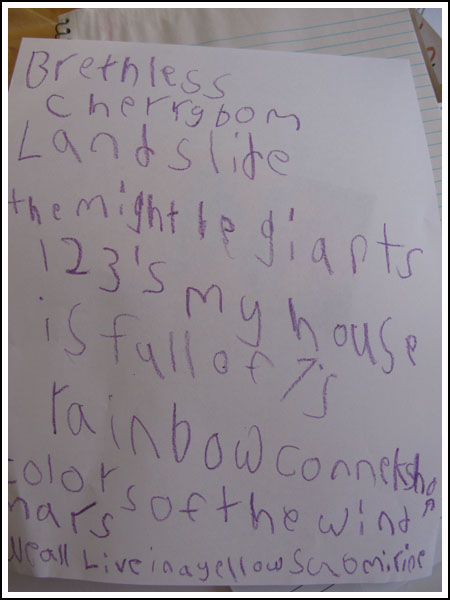 Brethless
cherrybom
Landslide
the might be giants
123's my house
is full of 7's
rainbow connekshon
colors of the wind
mars
We all Live in a yellow Submirine